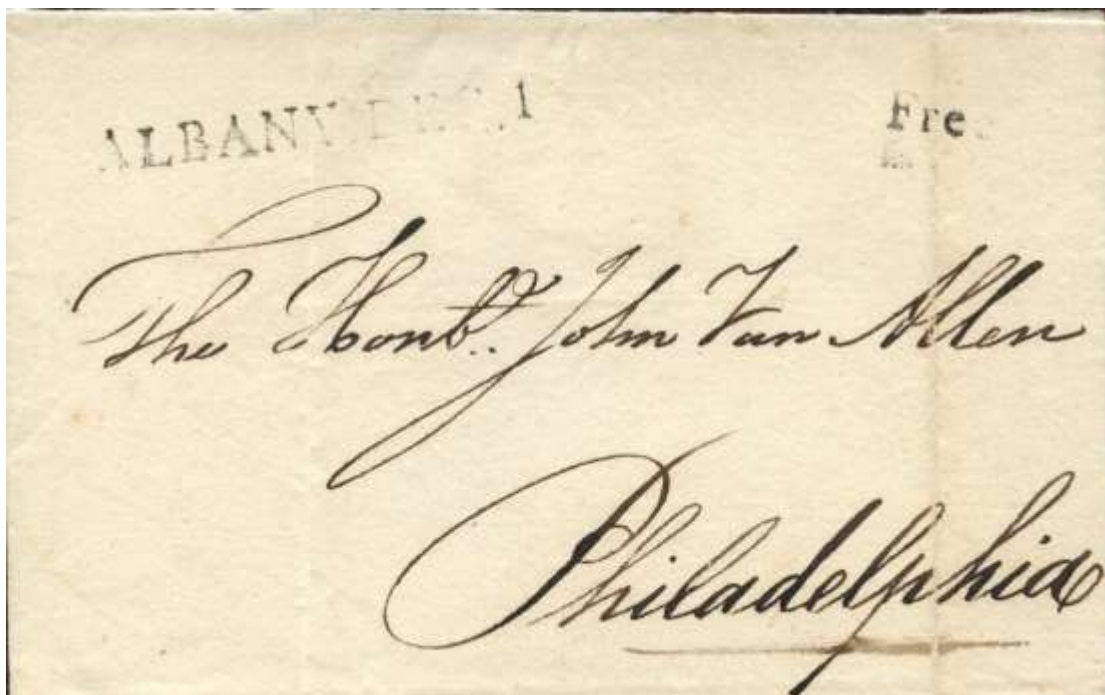 ALBANY DEC. 1
Free
The Honble. John Van Allen
Philadelphia